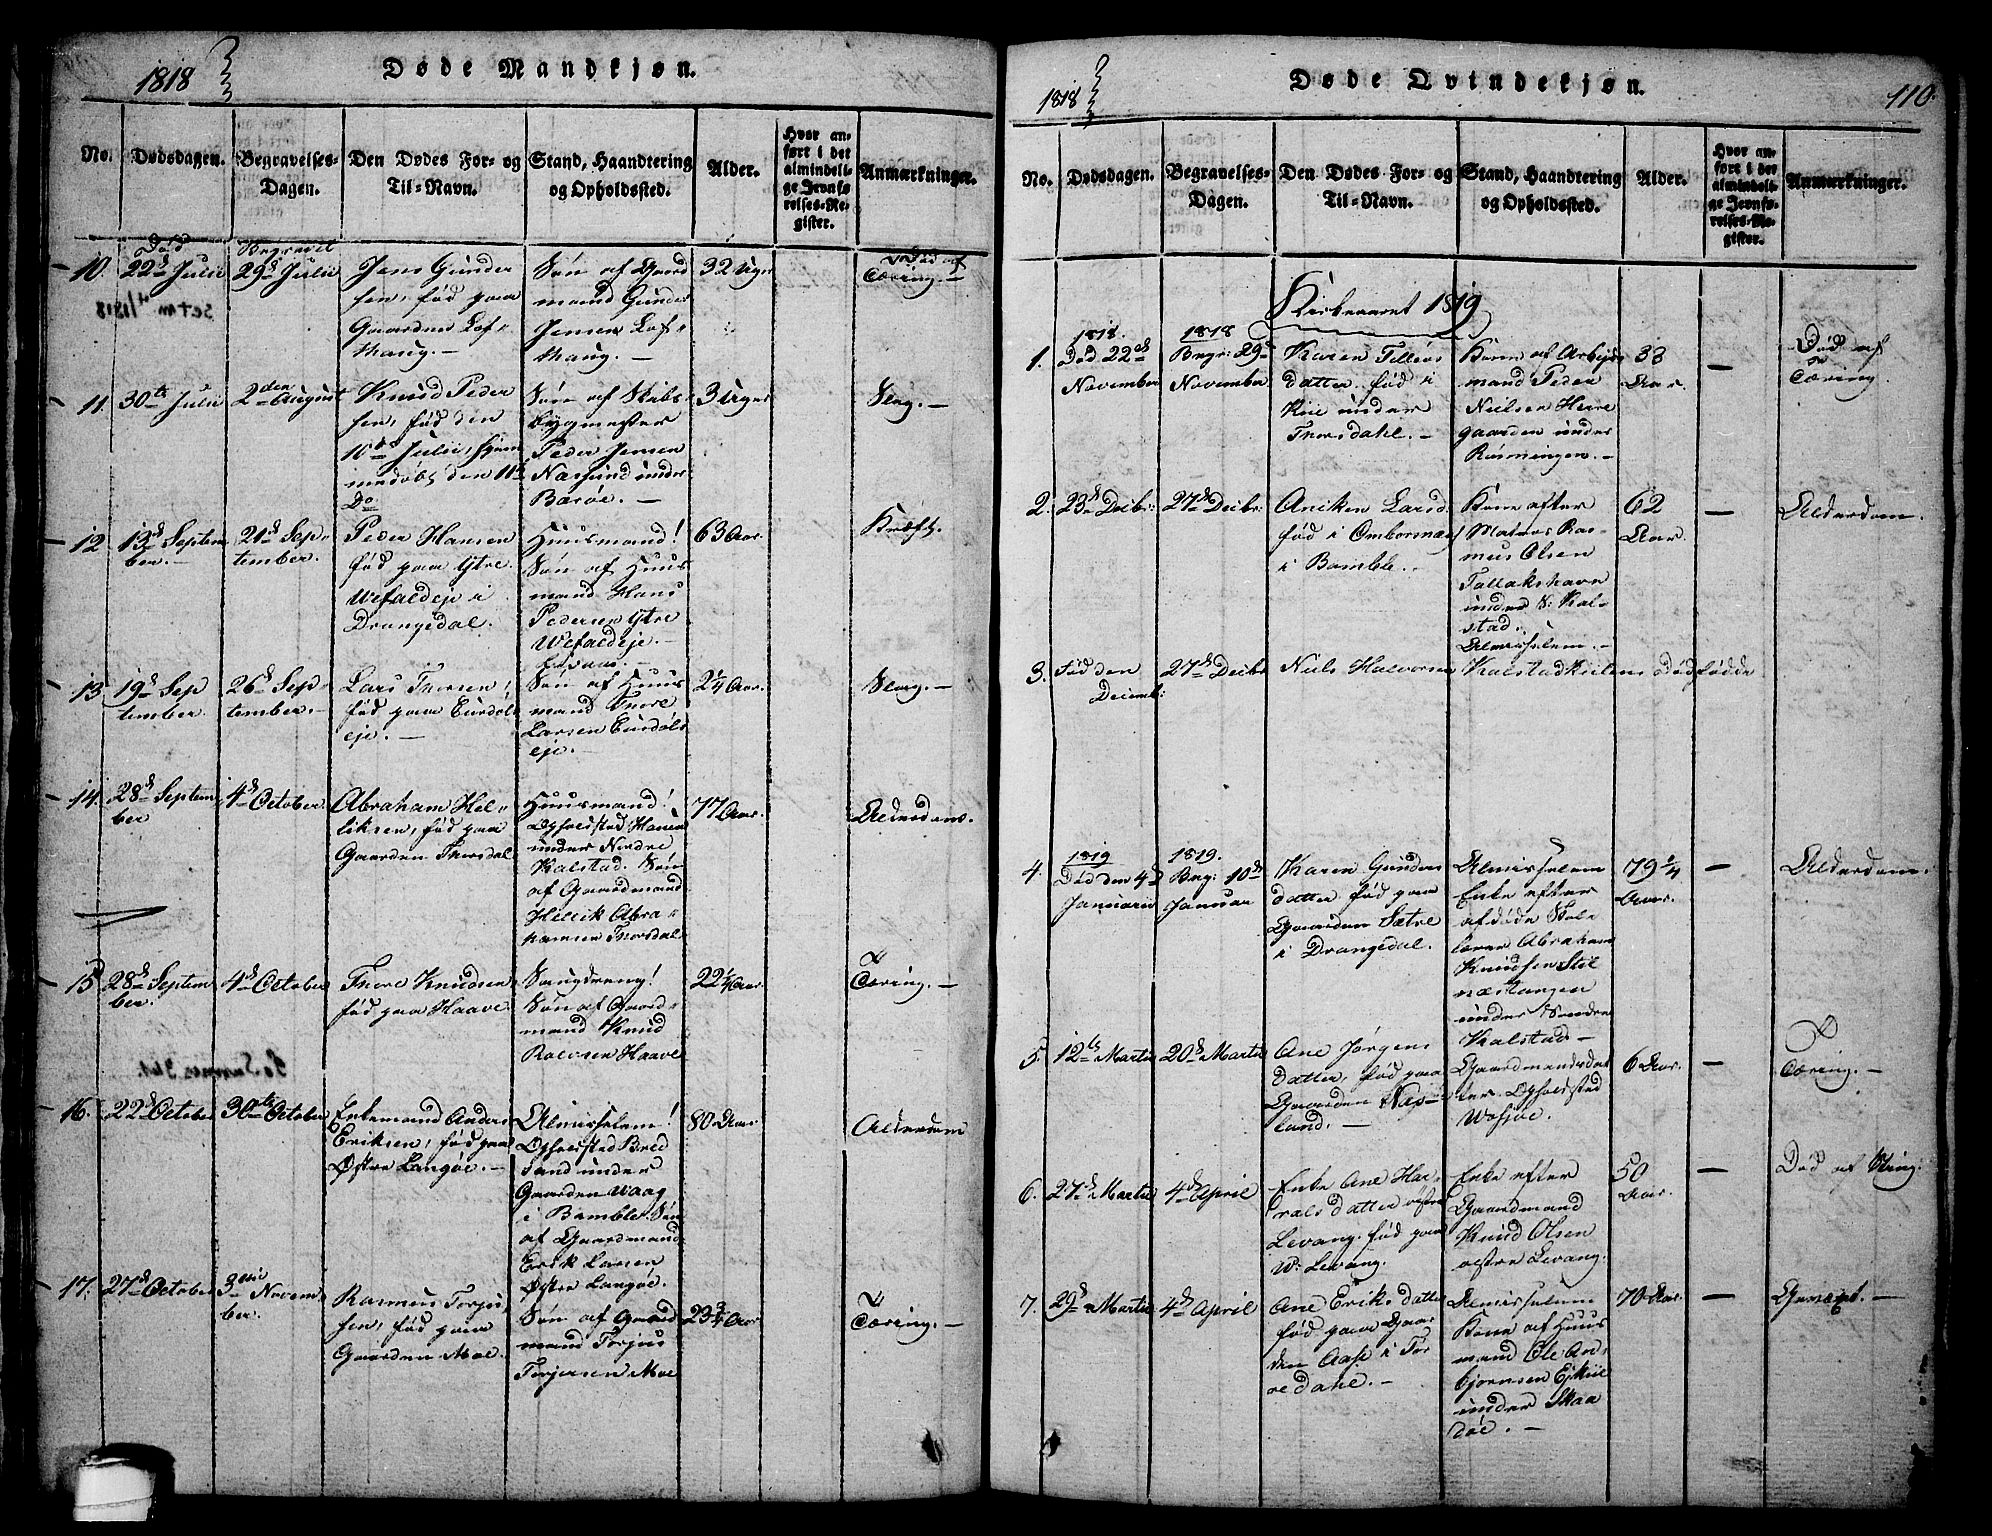 1818
Døde Mandkjøn.
No.
Dødsdagen.
Begravelses-
Dagen.
Den Dødes For- og
Til-Navn.
Stand, Haandtering
og Opholdssted.
Alder.
Hvor an-
ført i det
almindeli-
ge Jevnfø-
relses-Re-
gister.
Anmærkninger.
10.
Død
22d Julii
Begravet
29d Julii
Jens Gunder
sen, fød paa
Gaarden Lof-
thaug. —
Søn af Gaard
mand Gunder
Jensen Lof-
thaug. —
32 Uger
Død af
Tæring. —
11.
30te Julii
2den August
Knud Peder
sen, fød den
10de Julii, hjem
medøbt den 11te
Do
Søn af Skibs-
bygmester
Peder Jensen
Narsund under
Barøe. —
3 Uger
Slag. —
12
13d Septem
ber. —
21d Sep-
tember.
Peder Hansen
fød paa Ytre
Wefaldeje i
Drangedal.
Huusmand!
Søn af Huus
mand Hans
Pedersen Ytre
Wefaldeje. —
63 Aar.
Kræft.
13
19d Sep
tember.
26d Sep-
tember. —
Lars Thorsen,
fød paa Eurdøls
eje. —
Søn af Huus
mand Thore
Larsen Eurdøls
eje. —
2¼ Aar.
Slag. —
14.
28d Septem
ber
4d October
Abraham Hel-
liksen, fød paa
Gaarden Thorsdal
Huusmand!
Opholdsted Hauen
under Nordre
Kalstad. Søn
af Gaardmand
Hellik Abra-
hamsen Thorsdal
77 Aar.
Alderdom.
15
28d Septem
ber.
4d October
Thore Knudsen
fød paa Haave.
Søn af Gaard-
mand Knud
Rolvsen Haave
22¼ Aar
Tæring. —
16.
22d October
30te October
Enkemand Anders
Eriksen, fød paa
Østre Langøe. —
Almisselem!
Opholdsted Bred
sand under
Gaarden Waag
i Bamble. Søn
af Gaardmand
Erik Larsen
Østre Langøe.
80 Aar
Alderdom
17.
27d October
3die Novem-
ber.
Rasmus Torju
sen, fød paa
Gaarden Moe.
Søn af Gaard
mand Torjus
Torjersen Moe
23¾ Aar
Tæring. —
1818
Døde Qvindekjøn.
110.
No.
Dødsdagen.
Begravelses-
Dagen.
Den Dødes For- og
Til-Navn.
Stand, Haandtering
og Opholdssted.
Alder.
Hvor an-
ført i det
almindeli-
ge Jevnfø-
relses-Re-
gister.
Anmærkninger.
Kirkeaaret 1819
1.
1818.
Død 22de
November
1818
Begr: 29d
November
Karen Tellefs
datter fød i
Kiie under
Thorsdahl. —
Kone af Arbejds
mand Peder
Nielsen Herre
gaarden under
Rønningen. —
38
Aar.
—
Død af
Tæring.
2.
23d Decbr:
27d Decbr:
Aniken Larsd
fød i Omborsnæs
i Bamble. —
Kone efter
Matros Ras-
mus Olsen
Tallakshavn
under S: Kal-
stad.
Almisselem. —
62
Aar.
—
Alderdom.
3.
Fød den
Decemb:
27d Decbr
Niels Halvorsen
Kalstadkilens Dødfødde
4.
1819
Død den 4d
Januarii
1819.
Beg: 10de
Januar
Karen Gunders
datter fød paa
Gaarden Sætre
i Drangedal.
Almisselem
Enke efter
afdøde Skole
lærer Abraham
Knudsen Stel
næstangen
under Søndre
Kalstad —
79¼
Aar.
—
Alderdom.
5.
12te Martii
20d Martii
Ane Jørgens
datter, fød paa
Gaarden Næs-
land. —
Gaardmandsdat
ter. Opholdsted
Wesjøe.
6 Aar.
—
Tæring. —
6.
27d Martii
4d April
Enke Ane Har-
ralsdatter østre
Levang, fød paa
W: Levang.
Enke efter
Gaardmand
Knud Olsen
østre Levang.
50
Aar.
—
Død af Sting.
7.
29d Martii
4d April
Ane Eriksdatter
fød paa Gaar
den Aase i Tør
redahl. —
Almisselem
Kone af Huus
mand Ole An-
bjørnsen Ejkiie
under Skaa
døe. —
70 Aar.
—